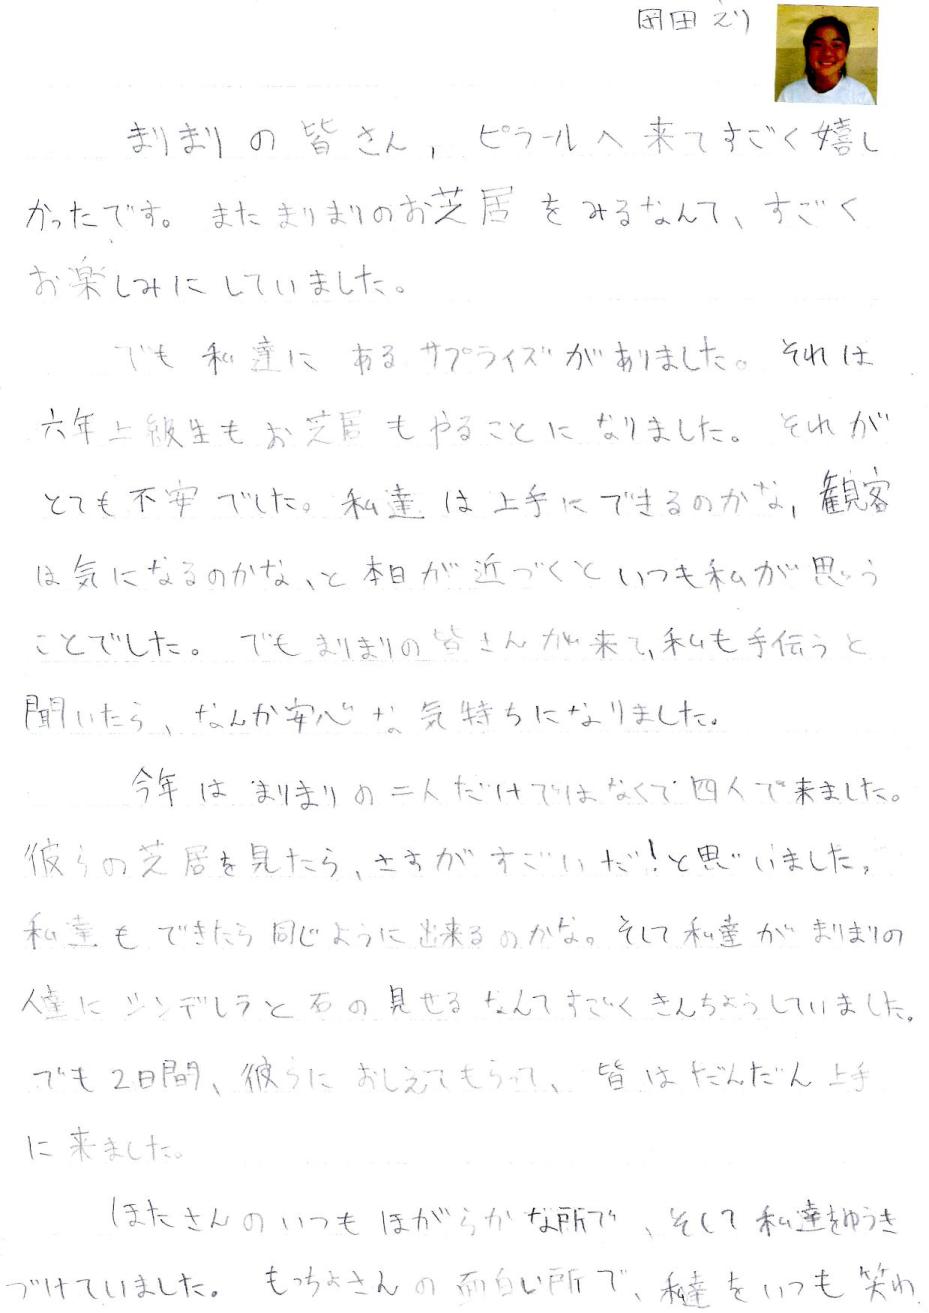 岡田えり
まりまりの皆さん, ピラールへ来てすごく嬉し
かったです。またまりまりのお芝居をみるなんて、すごく
お楽しみにしていました。
でも私達にあるサプライズがありました。それは
六年上級生もお芝居もやることになりました。それが
とても不安でした。私達は上手にできるのかな, 観客
は気になるのかな、と本日が近づくといつも私が思う
ことでした。でもまりまりの皆さんが来て, 私も手伝うと
聞いたら、なんか安心な気持ちになりました。
今年はまりまりの二人だけではなくて四人で来ました。
彼らの芝居を見たら、さすがすごいだ!と思いました。
私達もできたら同じように出来るのかな。そして私達がまりまりの
人達にシンデレラと石の見せるなんてすごくきんちょうしていました。
でも2日間、彼らにおしえてもらって、皆はだんだん上手
に来ました。
ほたさんのいつもほがらかな所で、そして私達をゆうき
づけていました。もっちょさんの面白い所で、私達をいつも笑わ